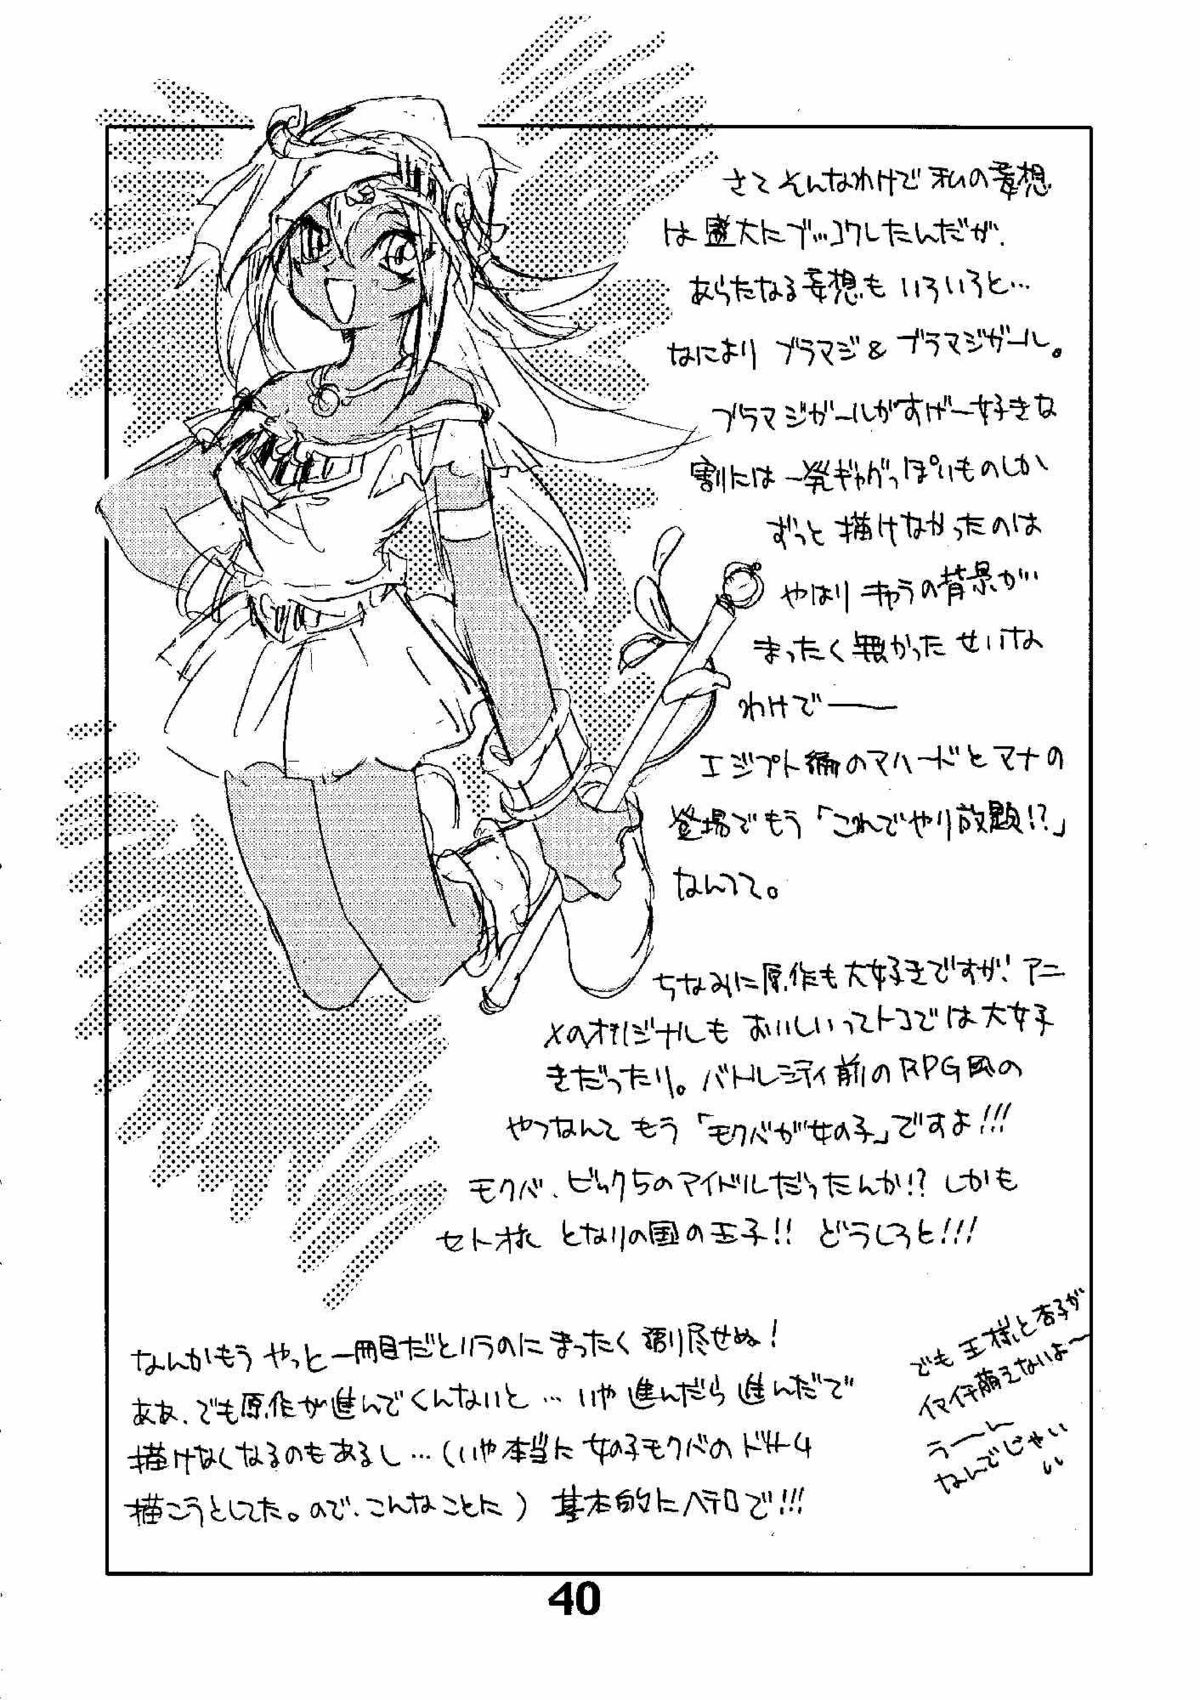 さて そんなわけで 私の妄想
は盛大にブッコワしたんだが、
あらたなる妄想も いろいろと…
なにより ブラマジ & ブラマジガール。
ブラマジガールがすげー好きな
割には一発ギャグっぽいものしか
ずっと 描けなかったのは
やはり キャラの背景が
まったく無かった せいな
わけで——
エジプト編のマハードとマナの
登場でもう「これでやり放題!?」
なんてて。
ちなみに原作も大好きですが、アニ
メのオリジナルも おいしいってトコでは大好
きだったり。バトルシティ前のRPG風の
やつなんて もう 「モクバが女の子」ですよ!!!
モクバ、ビック5のアイドルだったんか!? しかも
セト様 となりの国の王子!! どうしろと!!!
なんかもう やっと一冊目だというのに まったく 語り尽せぬ!
ああ、でも原作が進んでくんないと… いや 進んだら 進んだで
描けなくなるのもあるし…(いや本当に 女の子モクバの
描こうとしてた。ので、こんなことに) 基本的にヘテロで!!!
でも 王様と杏子が
イマイチ萌えないよ〜
うーん
なんでじゃい
い
40